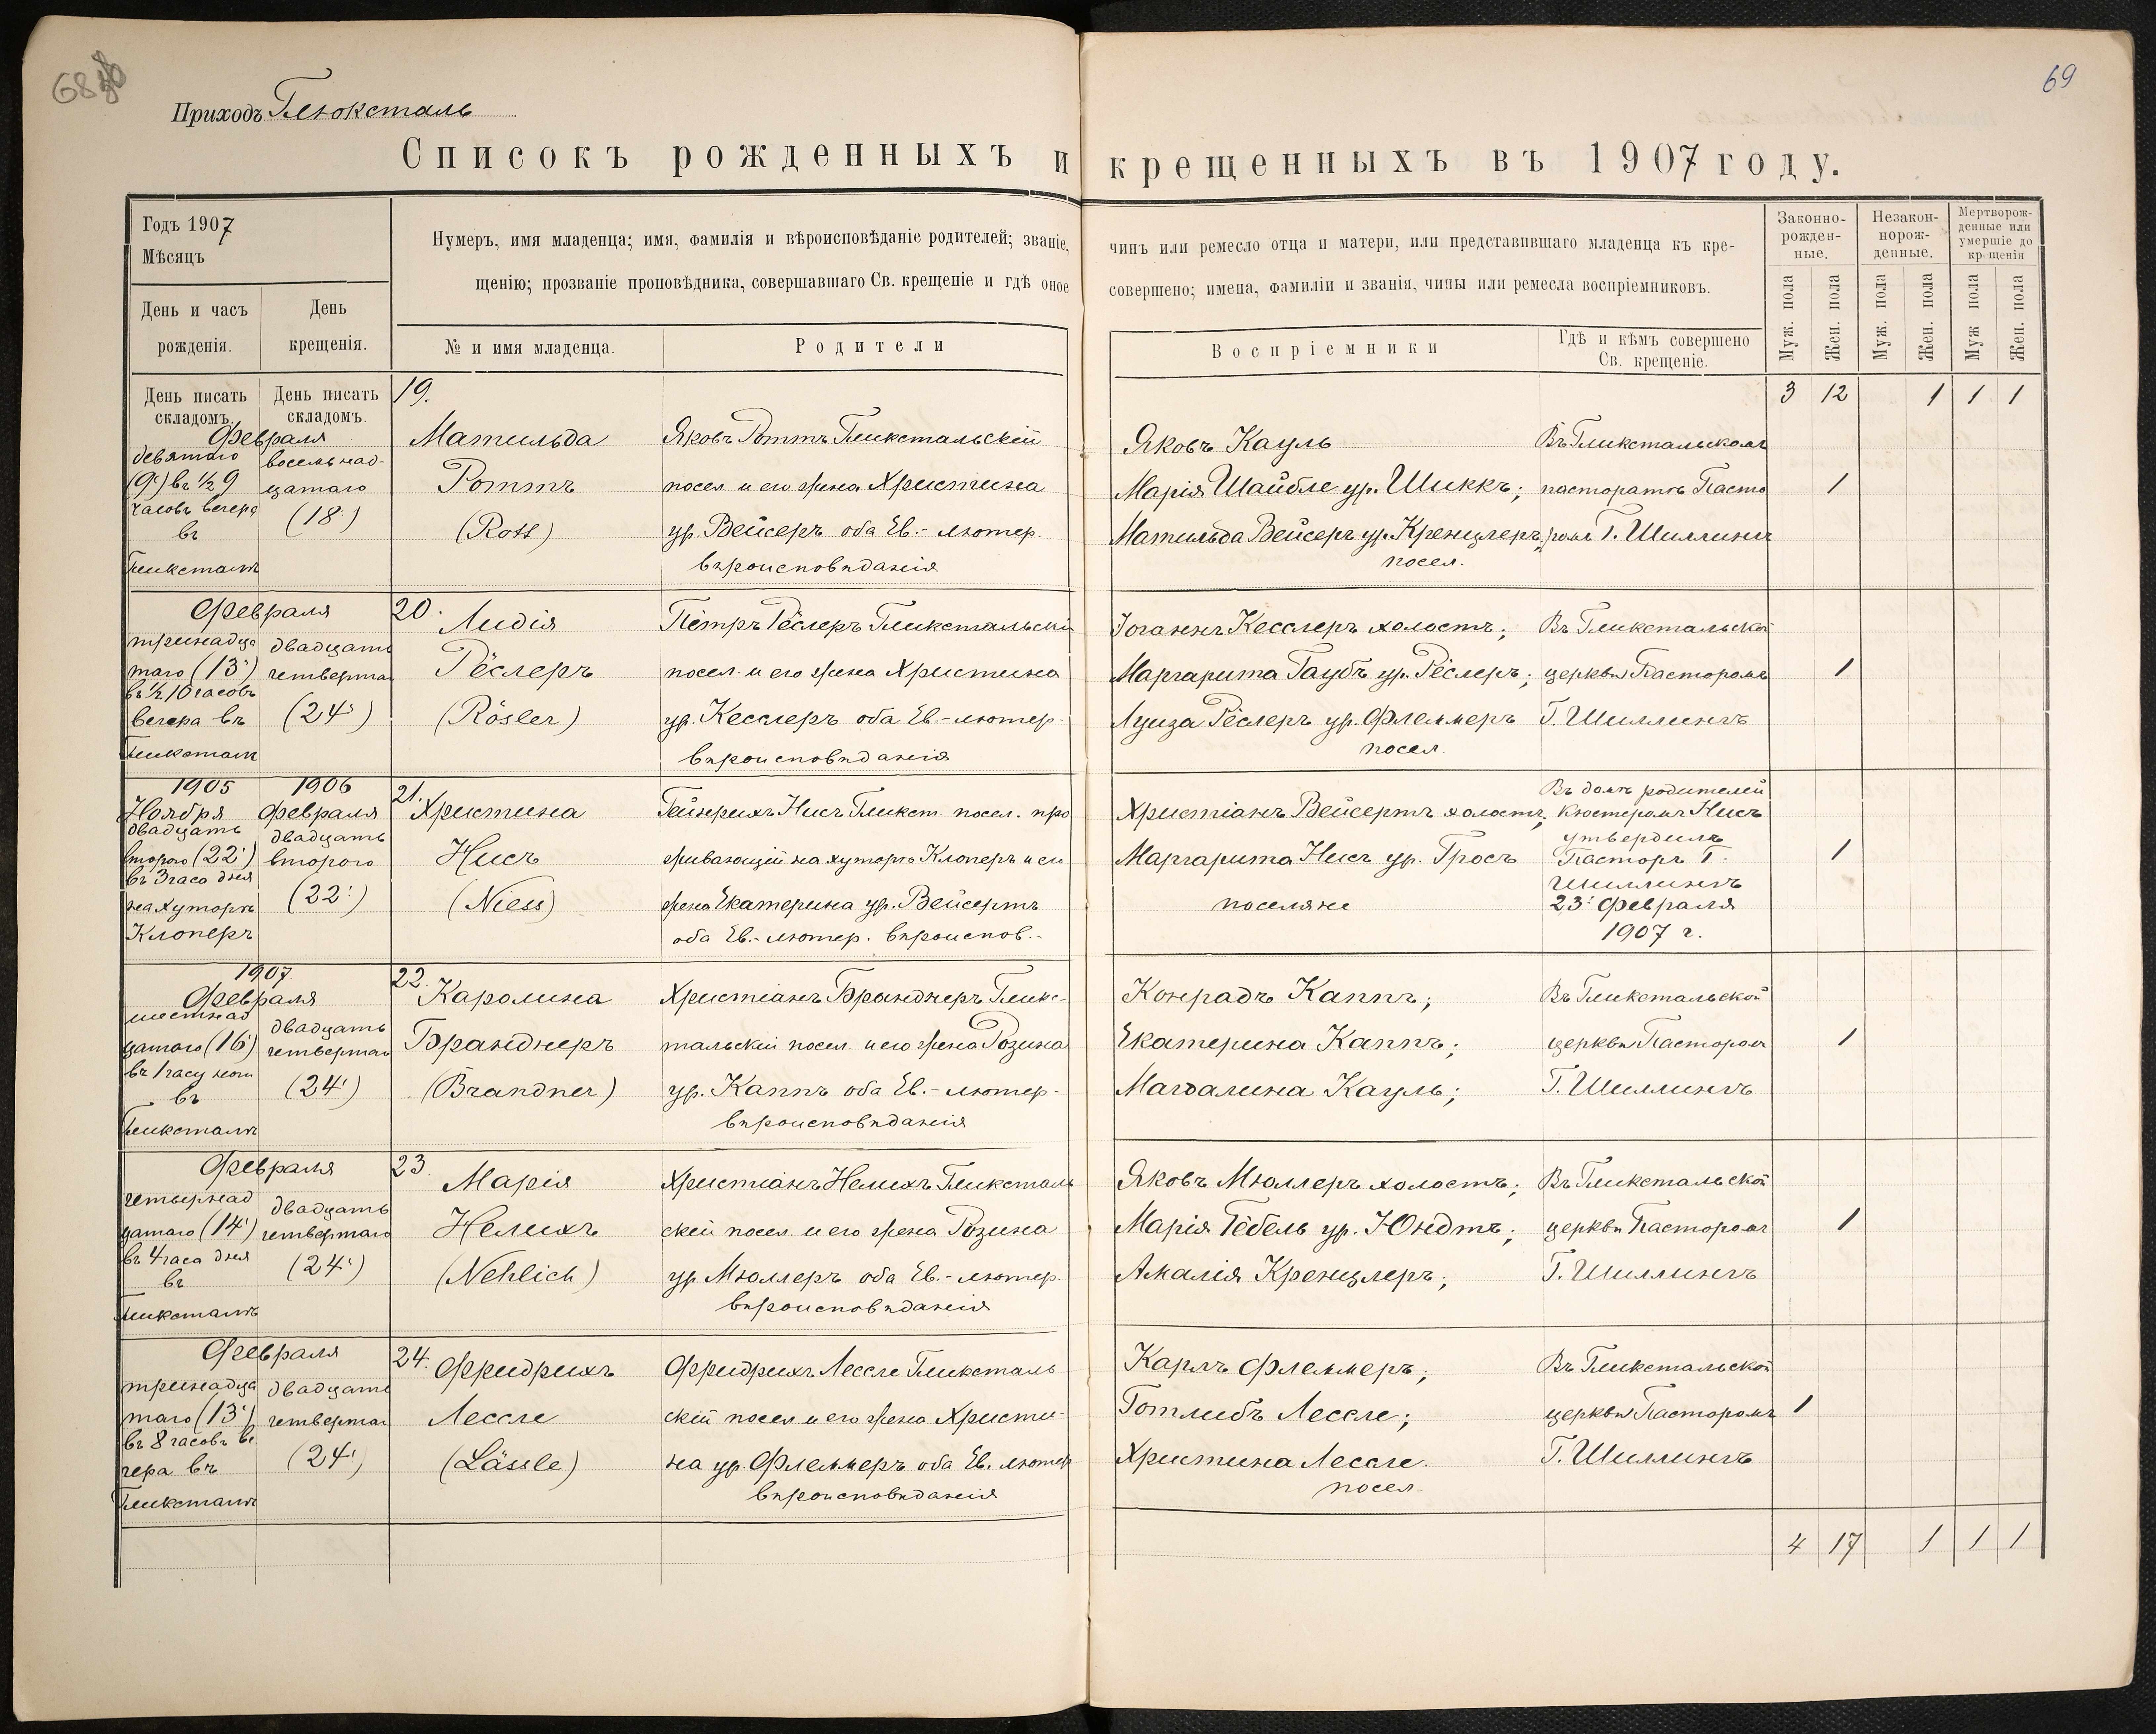 68
69
Приходъ Глюксталь
Списокъ рожденныхъ и крещенныхъ въ 1907 году.
Годъ 1907
Мѣсяцъ
День и часъ рожденія.
День крещенія.
Нумеръ, имя младенца; имя, фамилія и вѣроисповѣданіе родителей; званіе, чинъ или ремесло отца и матери, или представившаго младенца къ кре-
щенію; прозваніе проповѣдника, совершавшаго Св. крещеніе и гдѣ оное совершено; имена, фамиліи и званія, чины или ремесла воспріемниковъ.
№ и имя младенца.
Родители
Воспріемники
Гдѣ и кѣмъ совершено
Св. крещеніе.
Законно-
рожден-
ные.
Незакон-
норож-
денные.
Мертворож-
денные или
умершіе до
крещенія
Муж. пола
Жен. пола
Муж. пола
Жен. пола
Муж пола
Жен. пола
День писать
складомъ.
День писать
складомъ.
3 12 1 1 1
19.
Февраля
девятаго
(9.) въ ½ 9
часовъ вечера
въ
Глюксталѣ
восемнад-
цатаго
(18.)
Матильда
Роттъ
(Rott)
Яковъ Роттъ Глюкстальскій
посел. и его жена Христина
ур. Вейсеръ оба Ев.- лютер.
вѣроисповѣданія
Яковъ Кауль
Марія Шайбле ур. Шиккъ;
Матильда Вейсеръ ур. Кренцлеръ,
посел.
Въ Глюкстальскомъ
пасторатѣ Пасто
ромъ Г. Шиллингъ
1
20.
Февраля
тринадца
таго (13.)
въ ½ 10 часовъ
вечера въ
Глюксталѣ
двадцать
четвертаго
(24.)
Лидія
Рёслеръ
(Rösler)
Петръ Рёслеръ Глюкстальскій
посел. и его жена Христина
ур. Кесслеръ оба Ев.-лютер.
вѣроисповѣданія
Іоганнъ Кесслеръ холостъ;
Маргарита Таубъ ур. Рёслеръ;
Луиза Рёслеръ ур. Флеммеръ
посел.
Въ Глюкстальской
церкви Пасторомъ
Г. Шиллингъ
1
21.
1905
Ноября
двадцать
второго (22.)
въ 3 часа дня
на хуторѣ
Клоперъ
1906
Февраля
двадцать
второго
(22.)
Христина
Нисъ
(Niess)
Гейнрихъ Нисъ Глюкст. посел. про
живающій на хуторѣ Клоперъ и его
жена Екатерина ур. Вейсертъ
оба Ев.-лютер. вѣроиспов.-
Христіанъ Вейсертъ холостъ,
Маргарита Нисъ ур. Гросъ
поселяне
Въ домѣ родителей
Кюстеромъ Нисъ
утвердилъ
Пасторъ Г.
Шиллингъ
23. Февраля
1907 г.
1
22.
1907
Февраля
шестнад
цатаго (16.)
въ 1 часу ночи
въ
Глюксталѣ
двадцать
четвертаго
(24.)
Каролина
Бранднеръ
(Brandner)
Христіанъ Бранднеръ Глюкс-
тальскій посел. и его жена Розина
ур. Каппъ оба Ев.- лютер-
вѣроисповѣданія
Конрадъ Каппъ;
Екатерина Каппъ;
Магдалина Кауль;
Въ Глюкстальской
церкви Пасторомъ
Г. Шиллингъ
1
23.
Февраля
четырнад
цатаго (14.)
въ 4 часа дня
въ
Глюксталѣ
двадцать
четвертаго
(24.)
Марія
Нелихъ
(Nehlich)
Христіанъ Нелихъ Глюксталь
скій посел. и его жена Розина
ур. Мюллеръ оба Ев.-лютер.
вѣроисповѣданія
Яковъ Мюллеръ холостъ;
Марія Гебель ур. Юндтъ;
Амалія Кренцлеръ;
Въ Глюкстальской
церкви Пасторомъ
Г. Шиллингъ
1
24.
Февраля
тринадца
таго (13.)
въ 8 часовъ ве
чера въ
Глюксталѣ
двадцать
четвертаго
(24.)
Фридрихъ
Лессле
(Lässle)
Фридрихъ Лессле Глюксталь
скій посел. и его жена Христи-
на ур. Флеммеръ оба Ев. лютер
вѣроисповѣданія
Карлъ Флеммеръ;
Готлибъ Лессле;
Христина Лессле.
посел.
Въ Глюкстальской
церкви Пасторомъ
Г. Шиллингъ
1
4 17 1 1 1